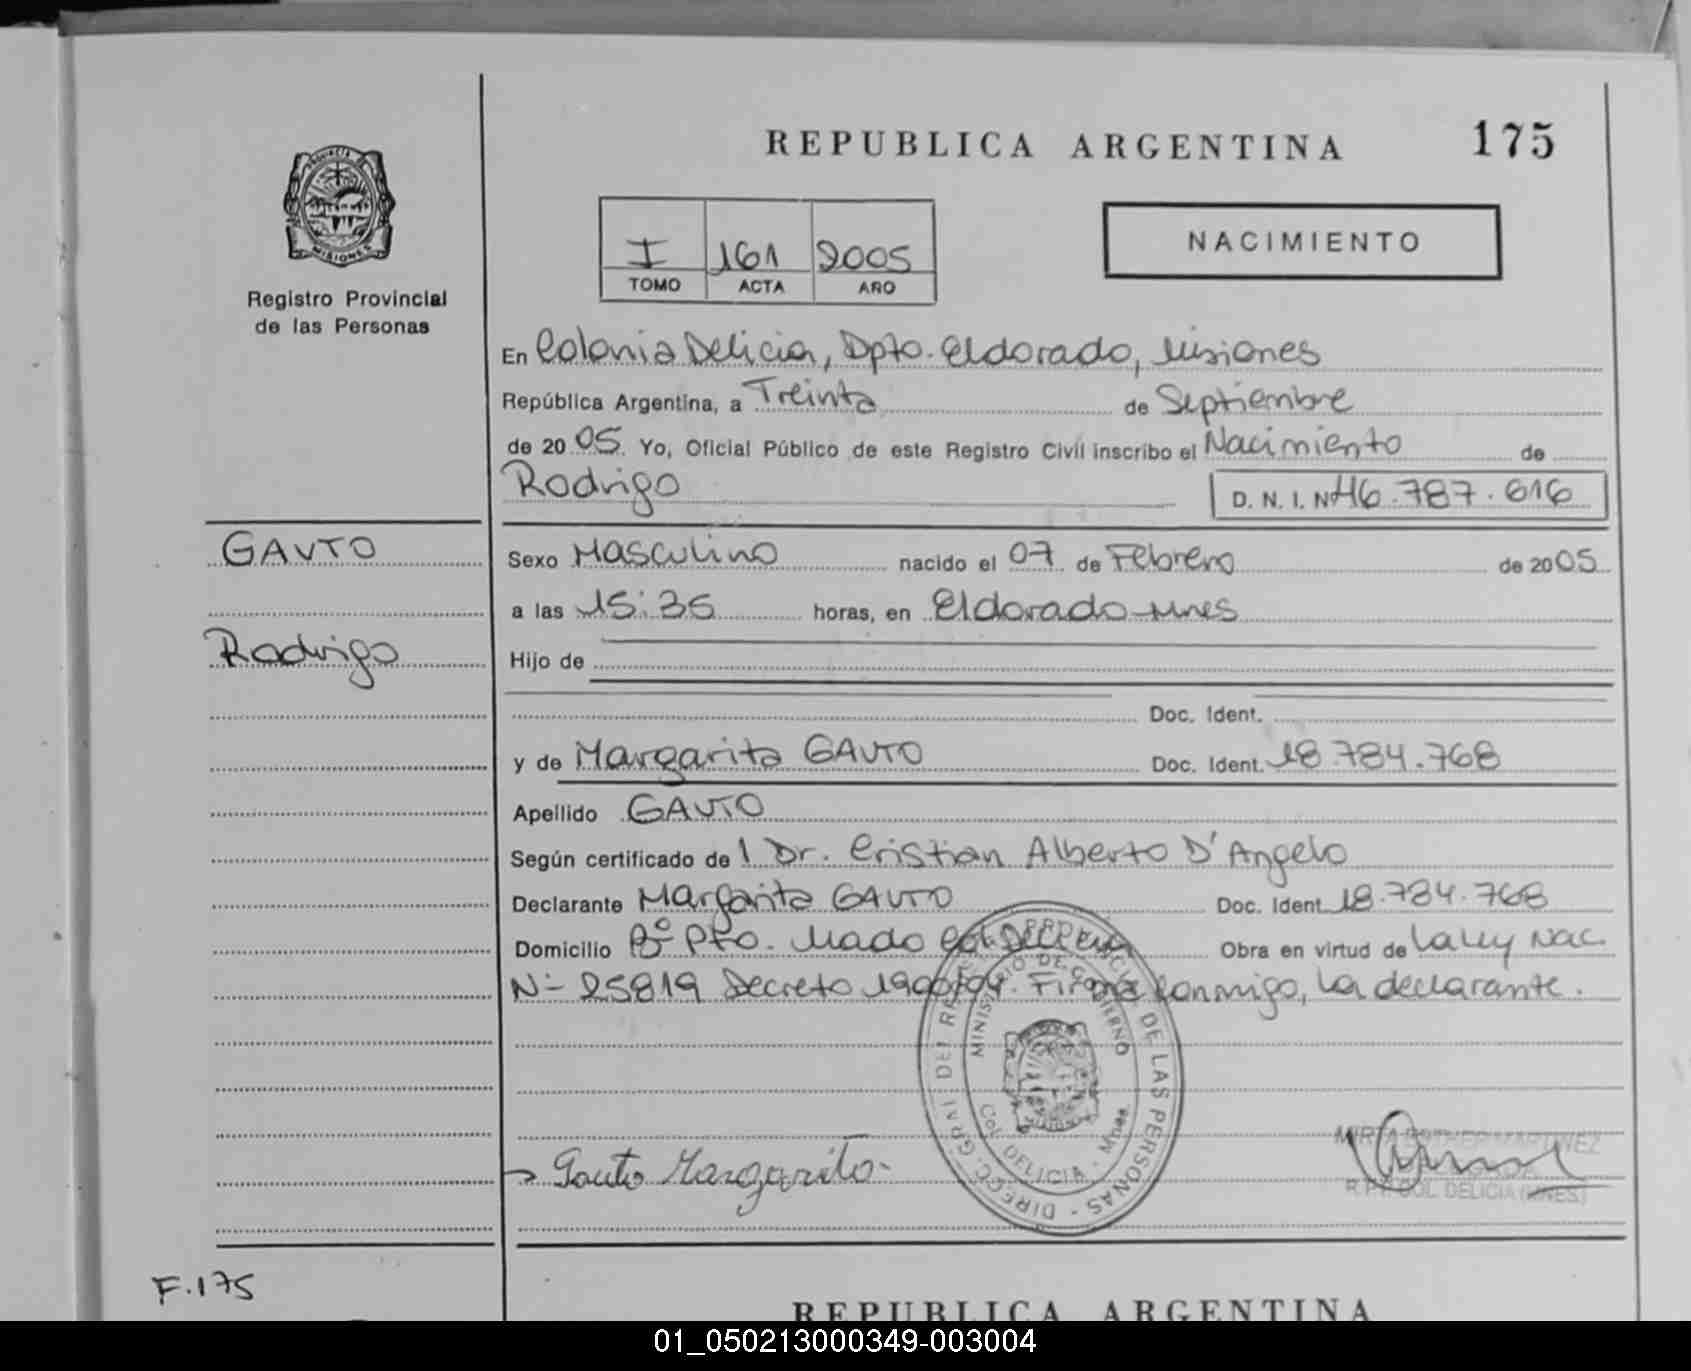 REPUBLICA ARGENTINA 175
PROVINCIA DE
MISIONES
Registro Provincial
de las Personas
I 161 2005
TOMO ACTA AÑO
NACIMIENTO
En Colonia Delicia, Dpto. Eldorado, Misiones
República Argentina, a Treinta de Septiembre
de 2005. Yo, Oficial Público de este Registro Civil inscribo el Nacimiento de
Rodrigo D. N. I. Nº 46.787.616
GAUTO
Sexo Masculino nacido el 07 de Febrero de 2005
a las 15:35 horas, en Eldorado Mnes
Rodrigo
Hijo de
Doc. Ident.
y de Margarita GAUTO Doc. Ident. 18.784.768
Apellido GAUTO
Según certificado de l Dr. Cristian Alberto D'Angelo
Declarante Margarita GAUTO Doc. Ident. 18.784.768
Domicilio Bº Pto. Mado Col. Delicia Obra en virtud de la Ley Nac.
Nº 25819 Decreto 1900/04. Firma conmigo, la declarante.
DIRECC. GRAL DEL REG. PROVINCIAL DE LAS PERSONAS -
MINISTERIO DE GOBIERNO
Col. DELICIA - Mnes.
Gauto Margarita-
MIRTA ESTHER MARTINEZ
R.P.P. COL. DELICIA (MNES)
F.175
REPUBLICA ARGENTINA
01_050213000349-003004